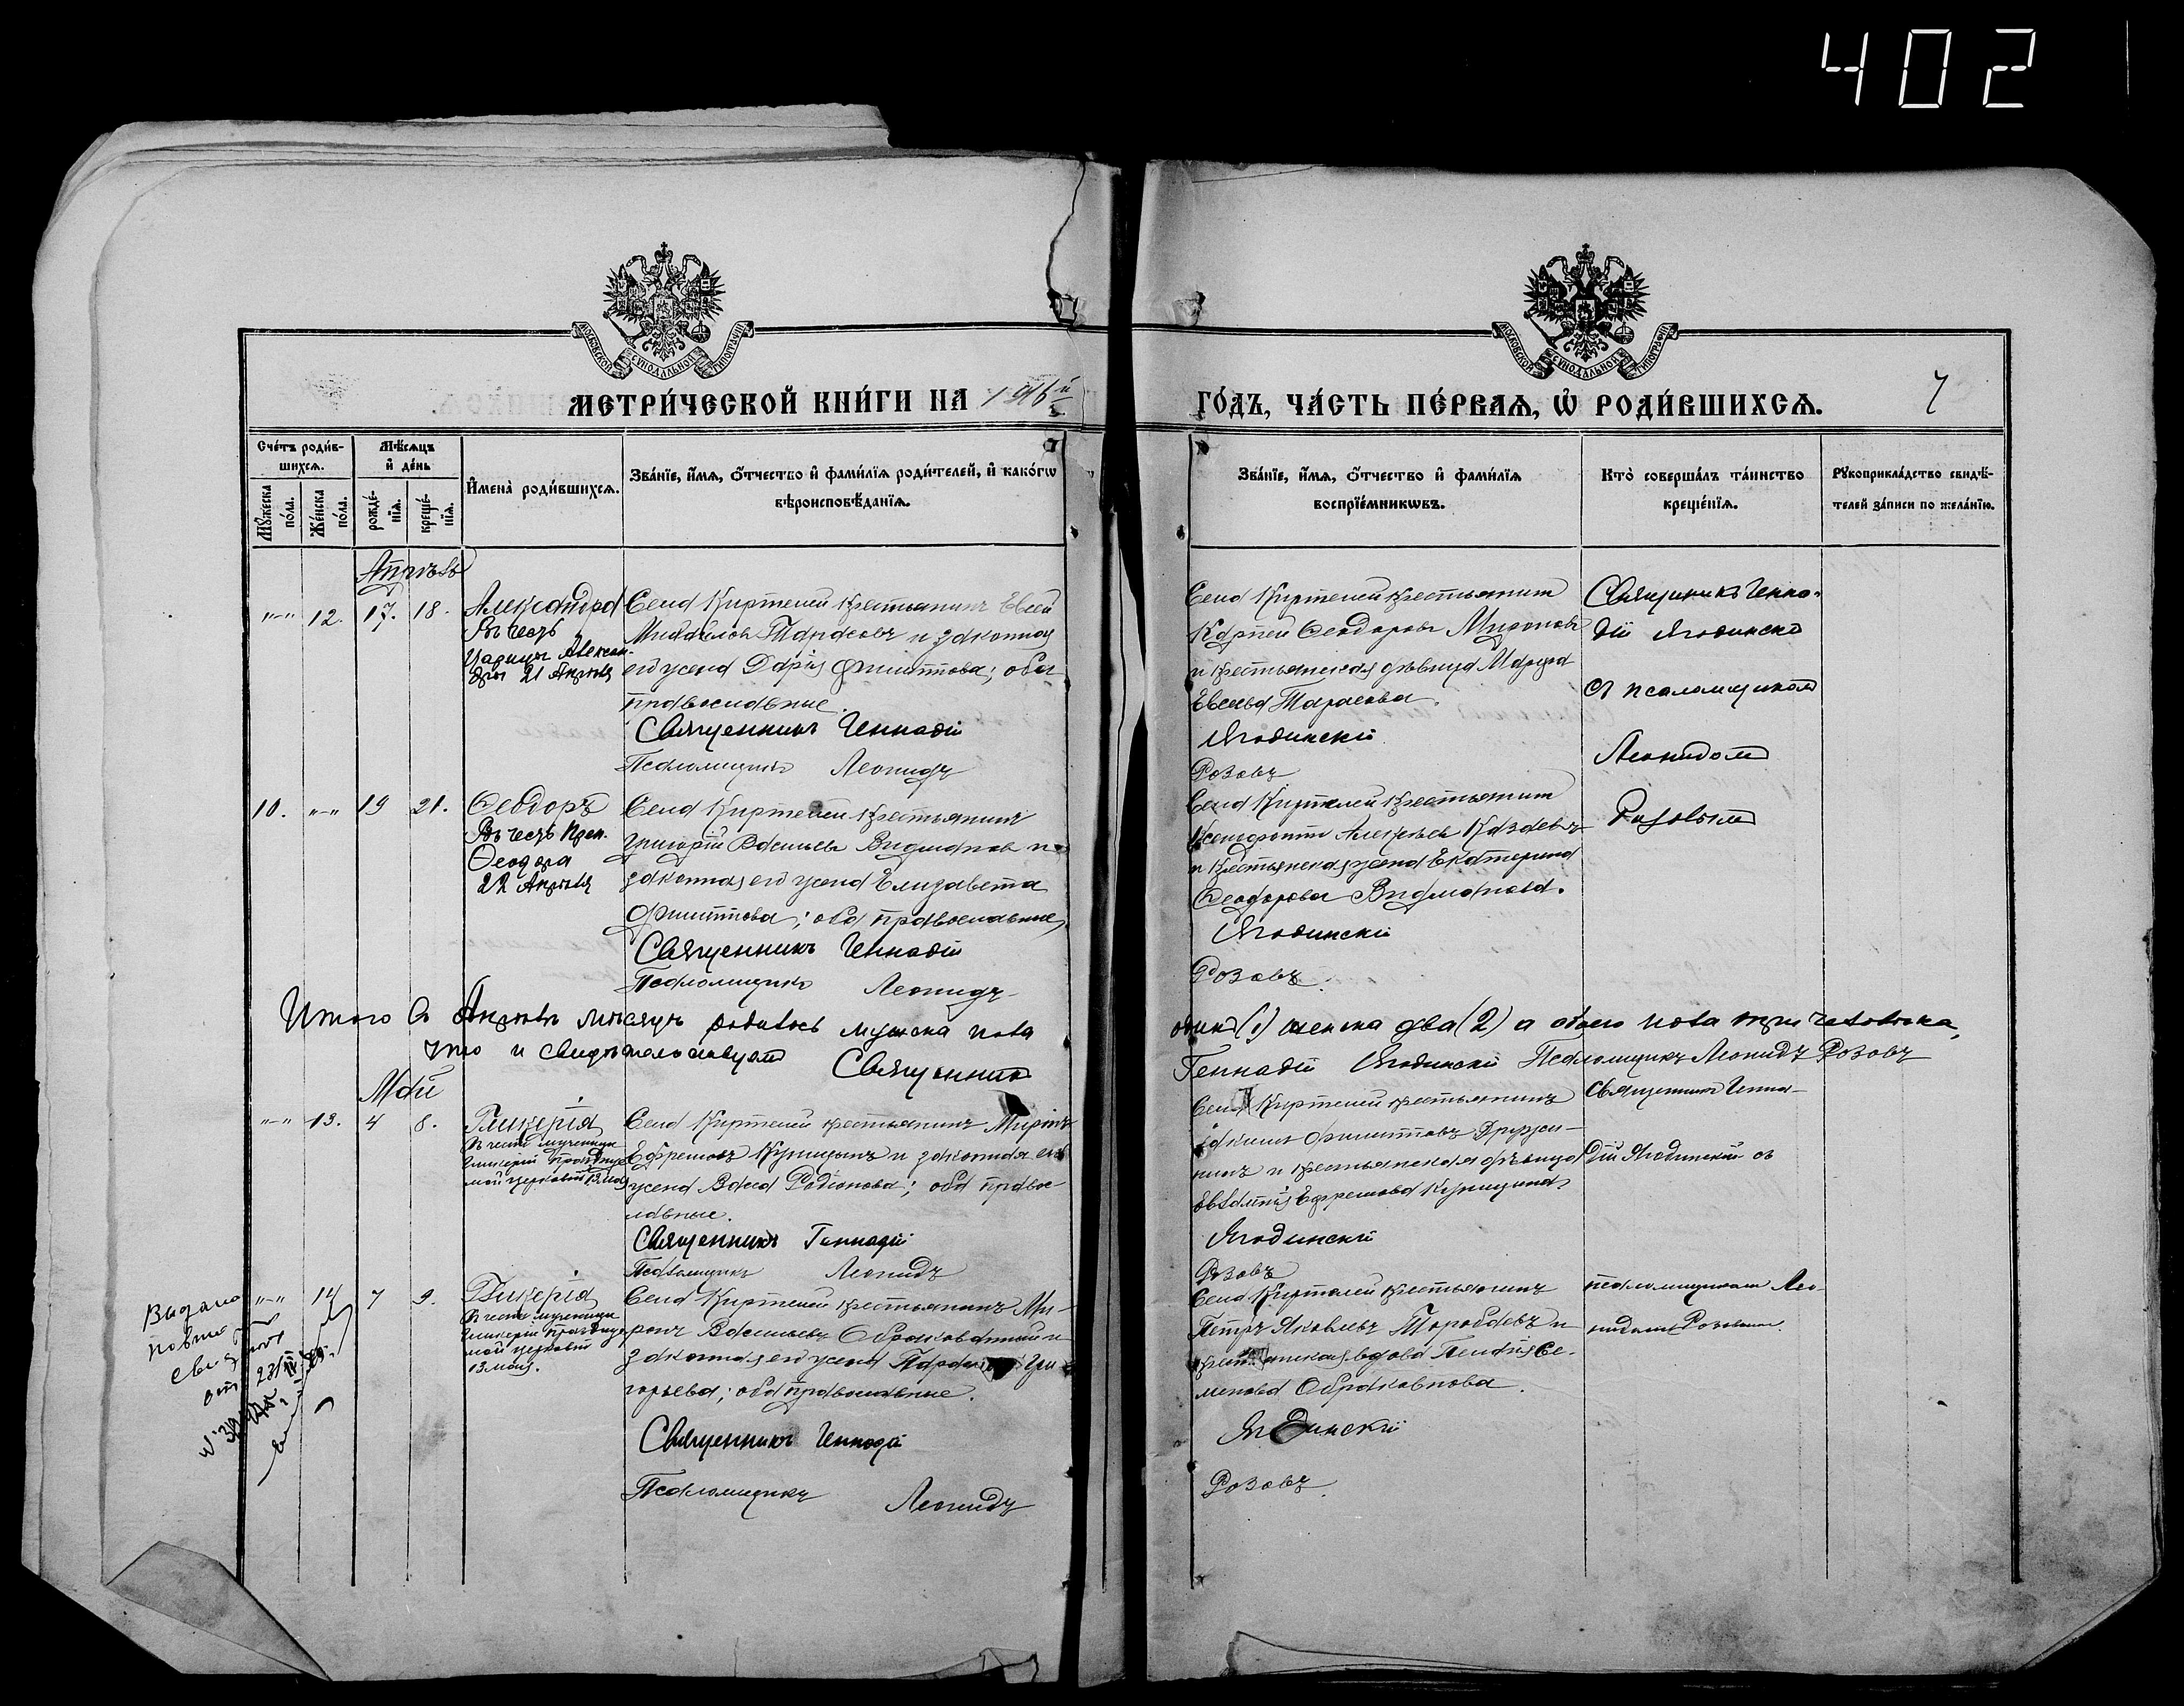 402
МОСКОВСКОЙ СУНОДАЛЬНОЙ ТИПОГРАФІИ
МОСКОВСКОЙ СУНОДАЛЬНОЙ ТИПОГРАФІИ
МЕТРИ́ЧЕСКОЙ КНИ́ГИ НА 1916 й
ГО́ДЪ, ЧА́СТЬ ПЕ́РВАЯ, Ѡ РОДИ́ВШИХСЯ.
7
Сче́тъ роди́в-
шихся.
Мѣ́сяцъ
и҆ де́нь
Мꙋ́жеска по́ла.
Же́нска по́ла.
рожде́-нїя.
креще́-нїя.
И҆мена̀ роди́вшихся.
Зва́нїе, и҆́мя, ѻ҆́тчество и҆ фами́лїя роди́телей, и҆ како́гѡ
вѣроисповѣ́данїя.
Зва́нїе, и҆́мя, ѻ҆́тчество и҆ фами́лїя
воспрїе́мникѡвъ.
Кто̀ соверша́лъ та́инство
креще́нїя.
Рꙋкоприкла́дство свидѣ́-
телей за́писи по жела́нїю.
Апрѣль
"-" 12. 17. 18.
Александра
Въ честь
Царицы Алексан-
дры 21 Апрѣля
Села Киртелей крестьянинъ Евсей
Михайловъ Тарасовъ и законная
его жена Дарія Филиппова; оба
православные.
Священникъ Геннадій
Псаломщикъ Леонидъ
Села Киртелей крестьянинъ
Карпей Феодоровъ Мироновъ
и крестьянская дѣвица Марѳа
Евсева Тарасова.
Ягодинскій
Розовъ
Священникъ Генна-
дій Ягодинскій
съ псаломщикомъ
Леонидомъ
Розовымъ
10. "-" 19 21.
Феодоръ
Въ честь Преп.
Феодора
22 Апрѣля
Села Киртелей крестьянинъ
Григорій Васильевъ Видмановъ и
законная его жена Елизавета
Филиппова; оба православные,
Священникъ Геннадій
Псаломщикъ Леонидъ
Села Киртелей крестьянинъ
Ксенофонтъ Алексѣевъ
и крестьянская жена Екатерина
Феодорова Видманова.
Ягодинскій
Розовъ.
Итого въ Апрѣлѣ мѣсяцѣ родилось мужска пола
одинъ (1) женска два (2) а обоего пола три человѣка,
что и свидѣтельствуемъ Священникъ
Геннадій Ягодинскій Псаломщикъ Леонидъ Розовъ
Май
"-" 13. 4 8.
Гликерія
Въ честь мученицы
Гликеріи празднуе-
мой церковію 13 мая
Села Киртелей крестьянинъ Миронъ
Ефремовъ Купцынъ и законная его
жена Васса Родіонова; оба правос-
лавные.
Священникъ Геннадій
Псаломщикъ Леонидъ
Села Киртелей крестьянинъ
Филипповъ Дружи-
нинъ и крестьянская дѣвица
Евдамнія Ефремова Купцына.
Ягодинскій
Розовъ
Священникъ Генна-
дій Ягодинскій съ
"-" 14 7 9.
Гликерія
Въ честь мученицы
Гликеріи празднуе-
мой церковію
13 мая.
Села Киртелей крестьянинъ Ми-
ронъ Васильевъ и
законная его жена Гри-
горьева; оба православные.
Священникъ Геннадій
Псаломщикъ Леонидъ
Села Киртелей крестьянинъ
Петръ Яковлевъ и
вдова Се-
менова
Ягодинскій
Розовъ.
псаломщикомъ Лео-
нидомъ Розовымъ.
Выдано